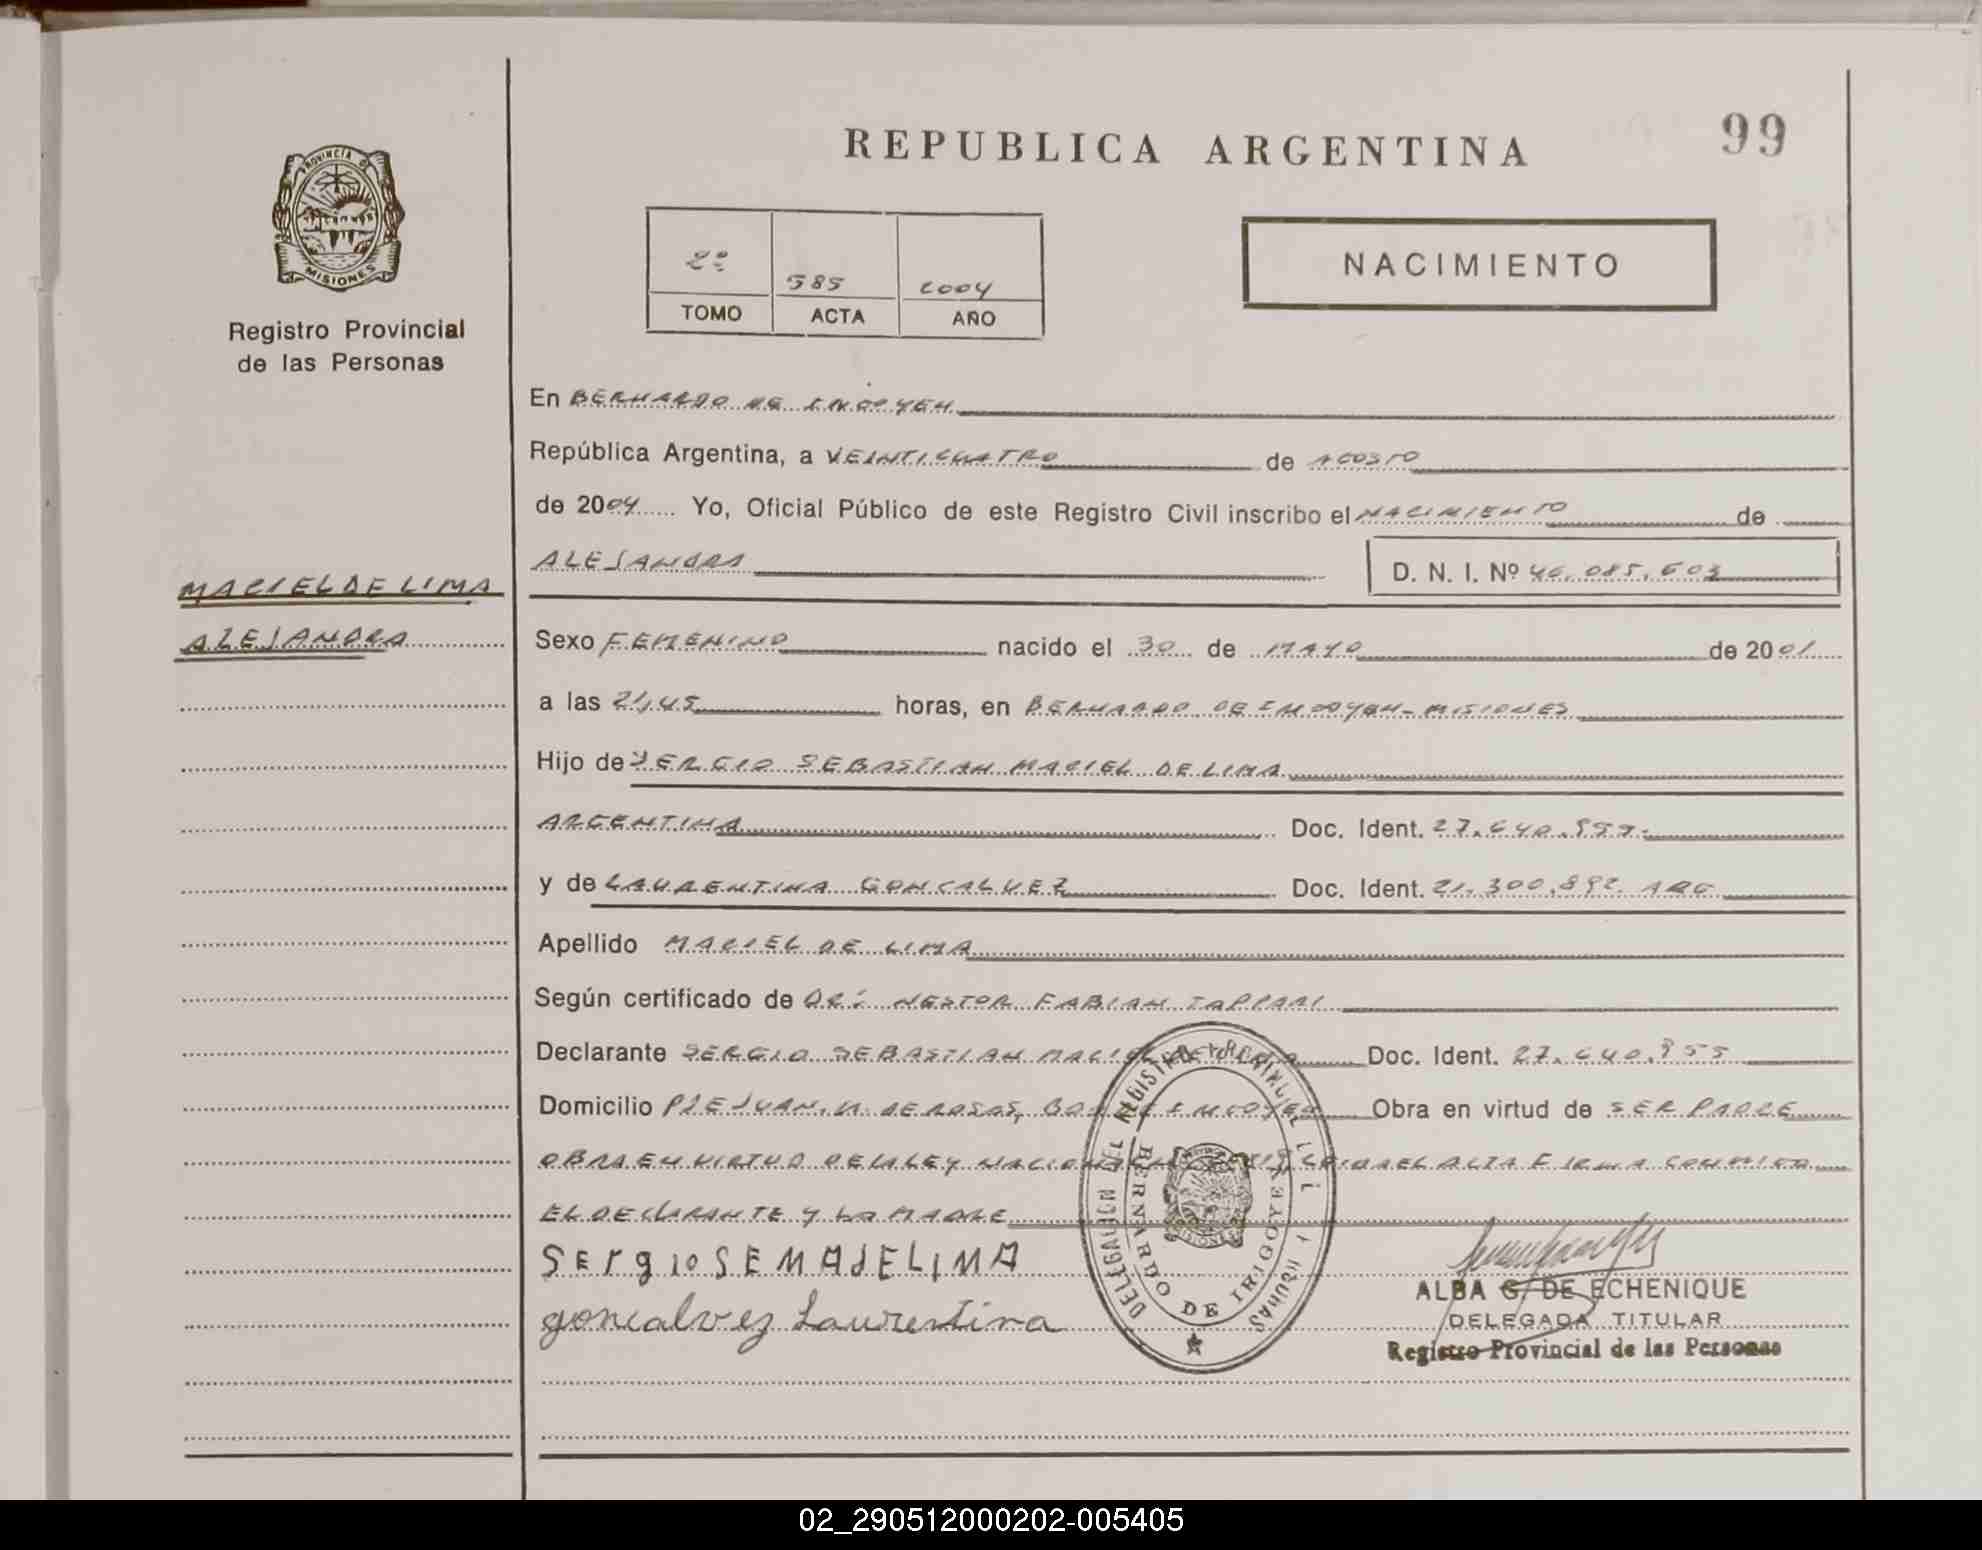 REPUBLICA ARGENTINA
99
PROVINCIA DE
MISIONES
Registro Provincial
de las Personas
2º
585
2004
TOMO
ACTA
AÑO
NACIMIENTO
En BERNARDO DE IRIGOYEN
República Argentina, a VEINTICUATRO de AGOSTO
de 2004 Yo, Oficial Público de este Registro Civil inscribo el NACIMIENTO de
ALEJANDRA
D. N. I. Nº 46.085.603
MACIEL DE LIMA
ALEJANDRA
Sexo FEMENINO nacido el 30 de MAYO de 2001
a las 21,45 horas, en BERNARDO DE IRIGOYEN-MISIONES
Hijo de SERGIO SEBASTIAN MACIEL DE LIMA
ARGENTINA Doc. Ident. 27.640.955
y de LAURENTINA GONCALVEZ Doc. Ident. 21.300.892 ARG
Apellido MACIEL DE LIMA
Según certificado de DR: NESTOR FABIAN
Declarante SERGIO SEBASTIAN MACIEL DE LIMA Doc. Ident. 27.640.955
Domicilio JUAN M. DE ROSAS, Obra en virtud de SER PADRE
OBRA EN VIRTUD DE LA LEY EL ACTA FIRMA CONMIGO
EL DECLARANTE Y LA MADRE
SErgio SE MA dE LIMA
goncalvez Laurentina
DELEGACION DEL REGISTRO PROVINCIAL
BERNARDO DE IRIGOYEN
MISIONES
ALBA G. DE ECHENIQUE
DELEGADA TITULAR
Registro Provincial de las Personas
02_290512000202-005405